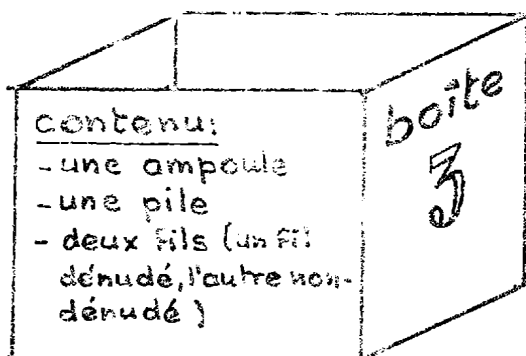 contenu:
- une ampoule
- une pile
- deux fils (un fil
dénudé, l'autre non-
dénudé)
boîte
3